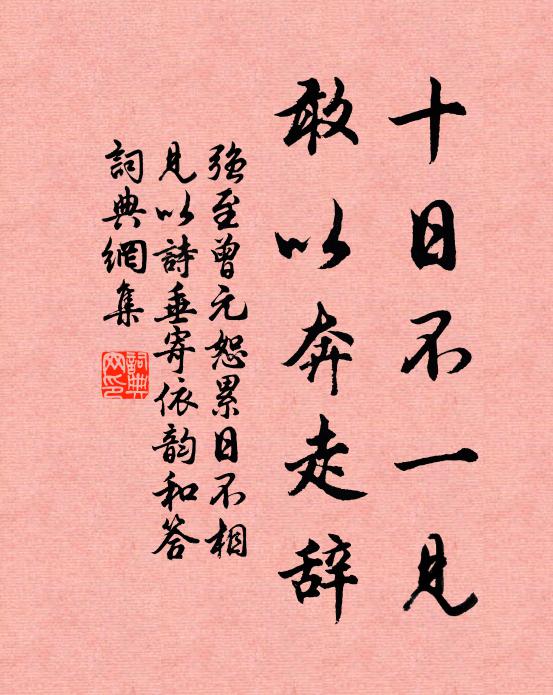 十日不一见
敢以奔走辞
强至曾元恕累日不相
见以詩垂寄依韵和答
詞典網集
詞典網印